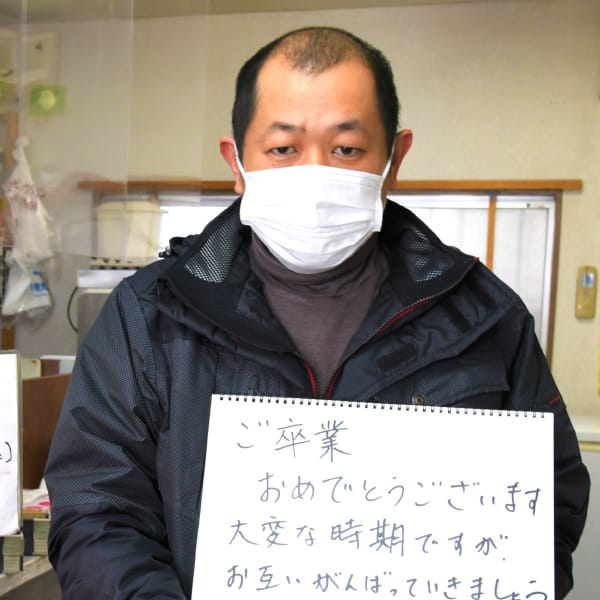 ご卒業
おめでとうございます
大変な時期ですが、
お互いがんばっていきましょう